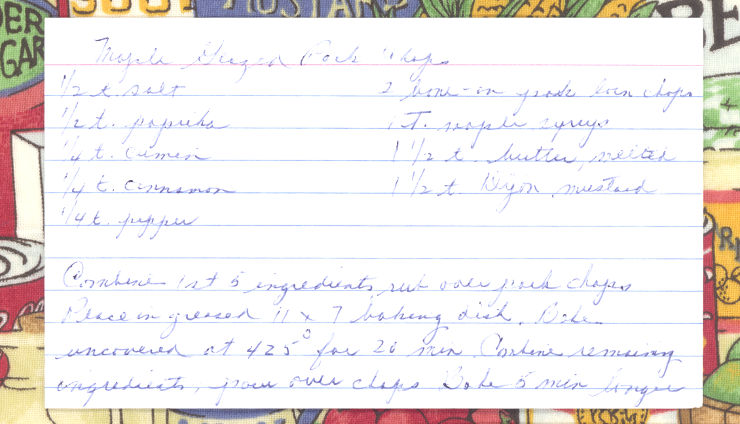 DER
GAR
MUSTARD
Maple Glazed Pork Chops
1/2 t. salt
2 bone-in pork loin chops
1/2 t. paprika
1 T. maple syrup
1/4 t. cumin
1 1/2 t. butter, melted
1/4 t. cinnamon
1 1/2 t Dijon mustard
1/4 t. pepper
Combine 1st 5 ingredients, rub over pork chops
Place in greased 11 x 7 baking dish. Bake
uncovered at 425° for 20 min. Combine remaining
ingredients, pour over chops Bake 5 min longer